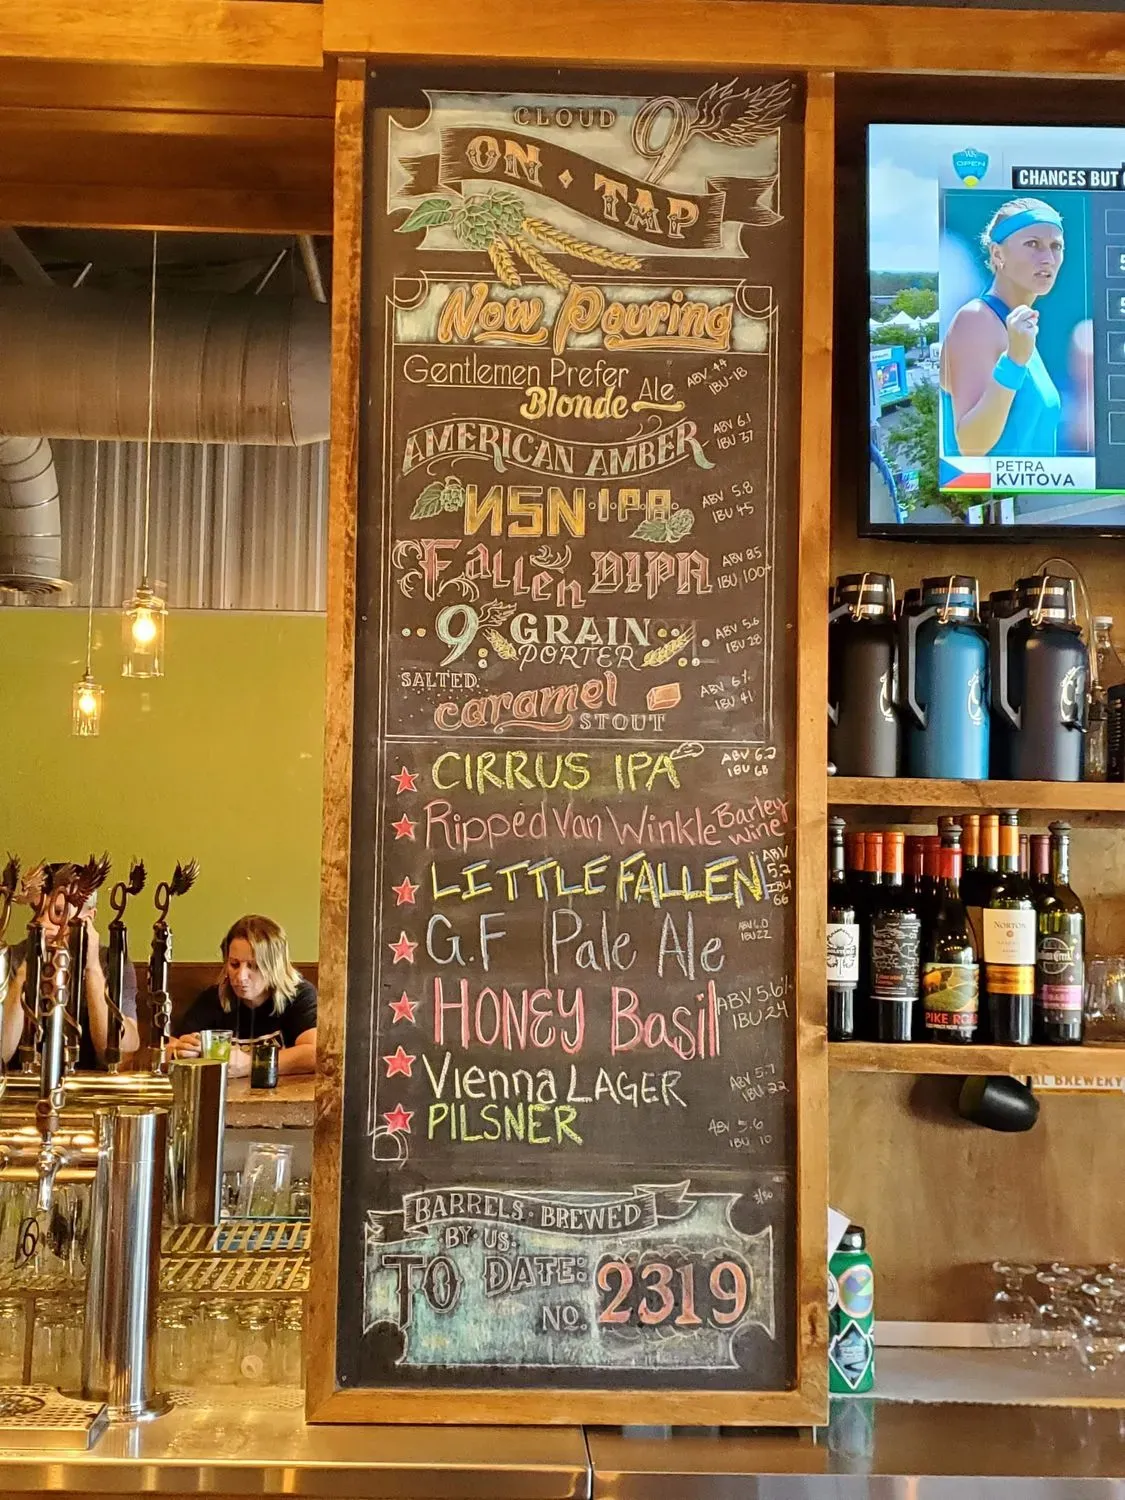 CLOUD 9
ON • TAP
Now Pouring
Gentlemen Prefer
Blonde Ale
ABV 4.4
IBU-18
AMERICAN AMBER
ABV 6.1
IBU 37
NSN I.P.A.
ABV 5.8
IBU 45
Fallen DIPA
ABV 8.5
IBU 100+
9 GRAIN
PORTER
ABV 5.6
IBU 28
SALTED
caramel
STOUT
ABV 6%
IBU 41
CIRRUS IPA
ABV 6.2
IBU 68
Ripped Van Winkle Barley
Wine
LITTLE FALLEN
ABV
5.2
IBU
66
G.F Pale Ale
ABV 6.0
IBU 22
HONEY Basil
ABV 5.6%
IBU 24
Vienna LAGER
ABV 5.7
IBU 22
PILSNER
ABV 5.6
IBU 10
BARRELS • BREWED
BY • US.
TO DATE:
NO. 2319
OPEN
CHANCES BUT
PETRA
KVITOVA
NORTON
PIKE ROAD
AL BREWERY